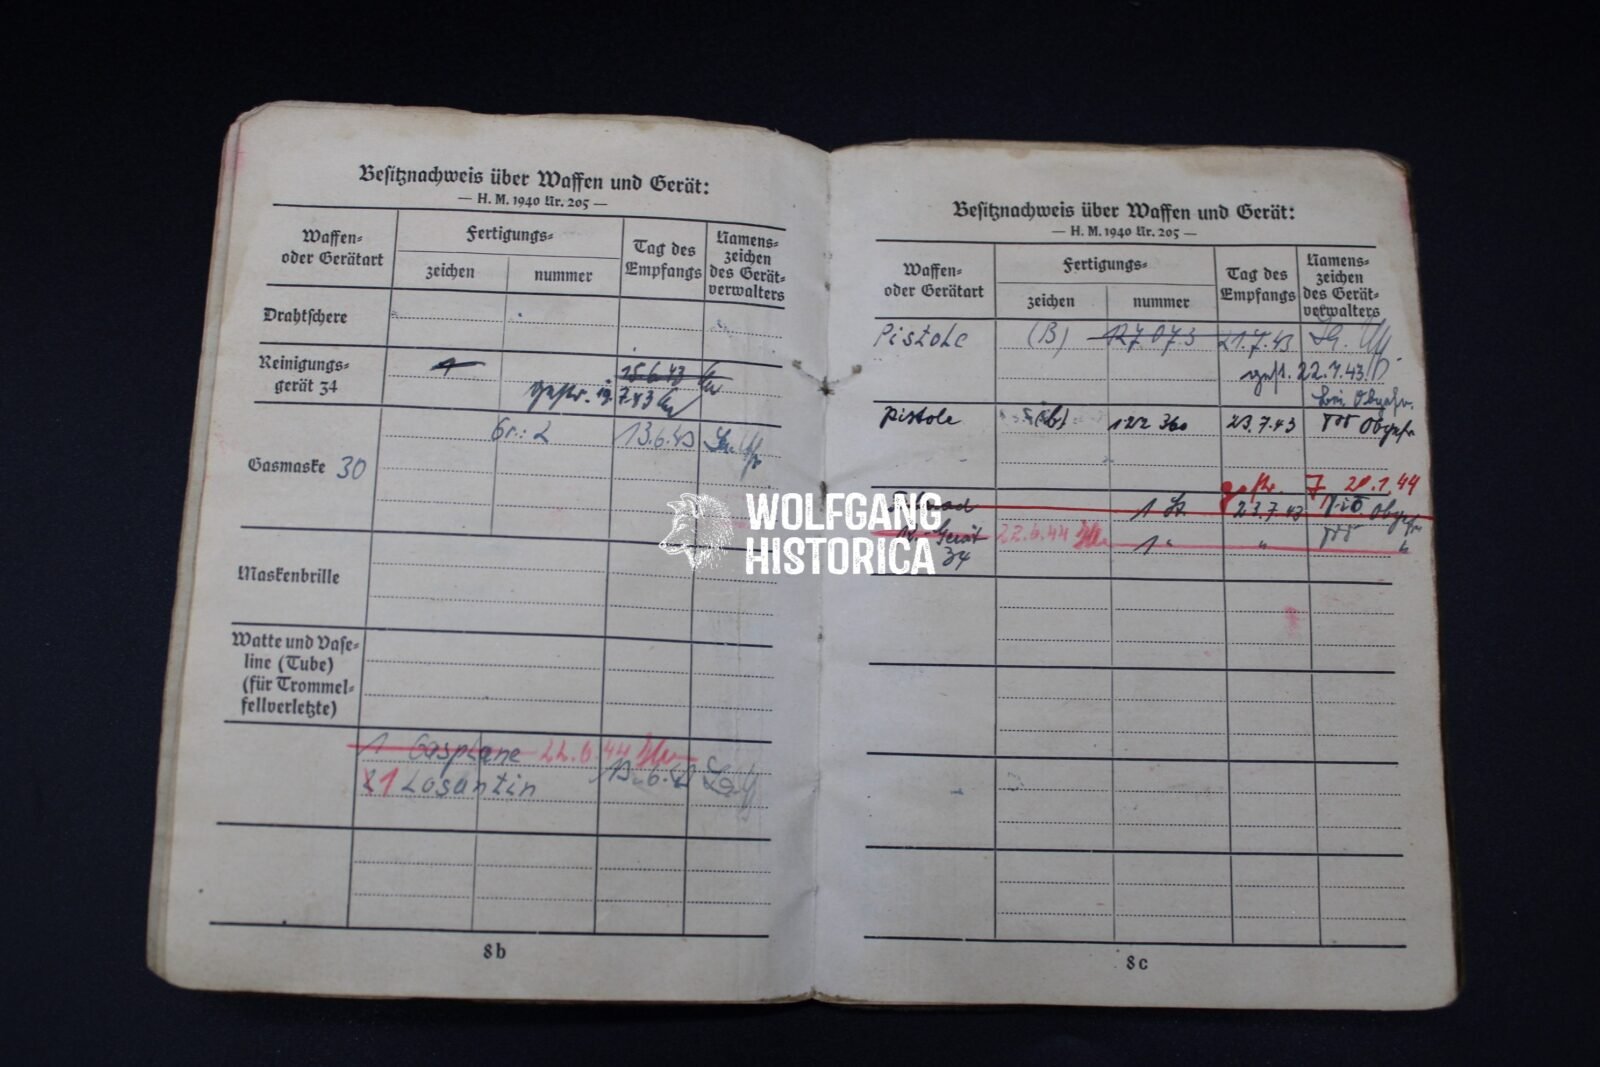 Besitznachweis über Waffen und Gerät:
— H. M. 1940 Nr. 205 —
Waffen-
oder Gerätart
Fertigungs-
zeichen
nummer
Tag des
Empfangs
Namens-
zeichen
des Gerät-
verwalters
Drahtschere
Reinigungs-
gerät 34
1
15.6.43
gestr. 19.7.43
Gasmaske 30
Gr: 2
13.6.43
Maskenbrille
Watte und Vase-
line (Tube)
(für Trommel-
fellverletzte)
1 Gasplane 22.6.44
1 Losantin
8b
Besitznachweis über Waffen und Gerät:
— H. M. 1940 Nr. 205 —
Waffen-
oder Gerätart
Fertigungs-
zeichen
nummer
Tag des
Empfangs
Namens-
zeichen
des Gerät-
verwalters
Pistole (B) 12707.3 21.7.43
gest. 22.7.43
Obgefr.
Pistole (b) 122 360 23.7.43 Obgefr
gestr. 20.1.44
1 St 23.7.43 Obgefr
Gerät 22.6.44 1 " "
34
8c
WOLFGANG
HISTORICA